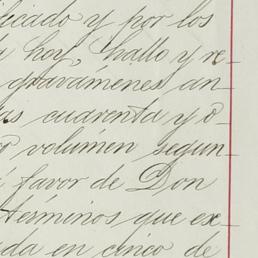 ficado y por los
hoy, hallo y re-
gravámenes an-
as cuarenta y o-
volúmen segun-
favor de Don
términos que ex-
da en cinco de